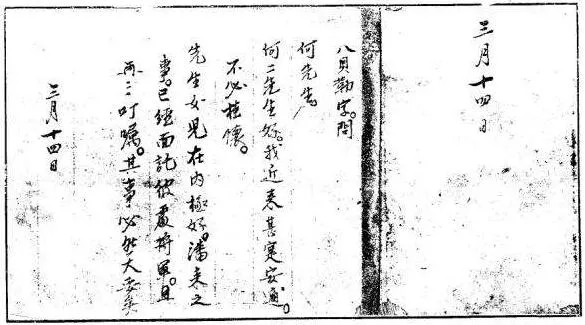 三月十四日
八貝勒字。問
何先生。
何二先生好。我近来甚寔安適。
不必挂懷。
先生女兒在内極好。潘耒之
事。已經面託彼處將軍。且
再三叮嘱。其事必然大妥矣
三月十四日